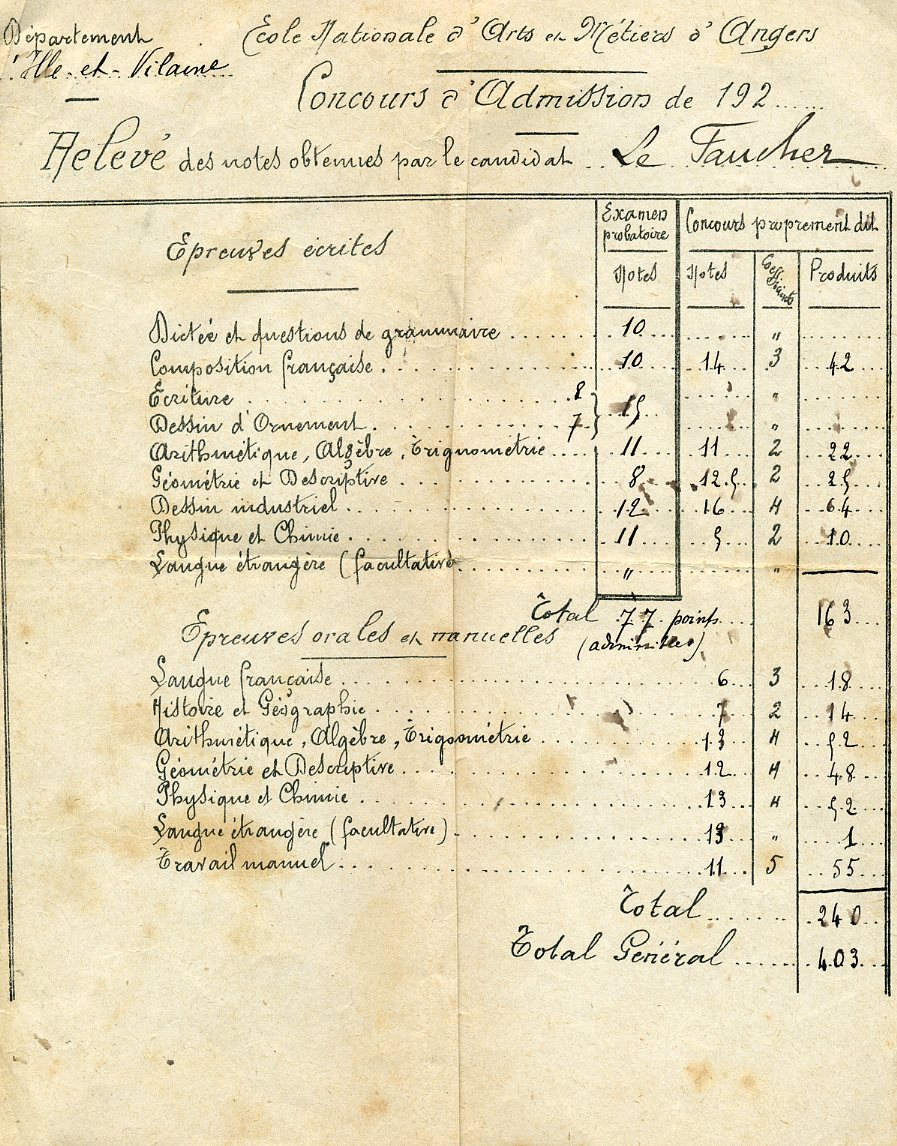 Département
d'Ille-et-Vilaine
Ecole Nationale d'Arts et Métiers d'Angers
Concours d'Admission de 192......
Relevé des notes obtenues par le candidat Le Faucher
Epreuves écrites
Examen probatoire
Concours proprement dit
Notes Notes Coefficients Produits
Dictée et questions de grammaire 10 "
Composition française 10 14 3 42
Ecriture 8 "
Dessin d'Ornement 7 15 "
Arithmétique, Algèbre, Trignométrie 11 11 2 22
Géométrie et Descriptive 8 12.5 2 25
Dessin industriel 12 16 4 64
Physique et Chimie 11 5 2 10
Langue étrangère (facultative) " "
Total 77 points 163
(admissible)
Epreuves orales et manuelles
Langue française 6 3 18
Histoire et Géographie 7 2 14
Arithmétique, Algèbre, Trigonométrie 13 4 52
Géométrie et Descriptive 12 4 48
Physique et Chimie 13 4 52
Langue étrangère (facultative) " 1
Travail manuel 11 5 55
Total 240
Total Général 403